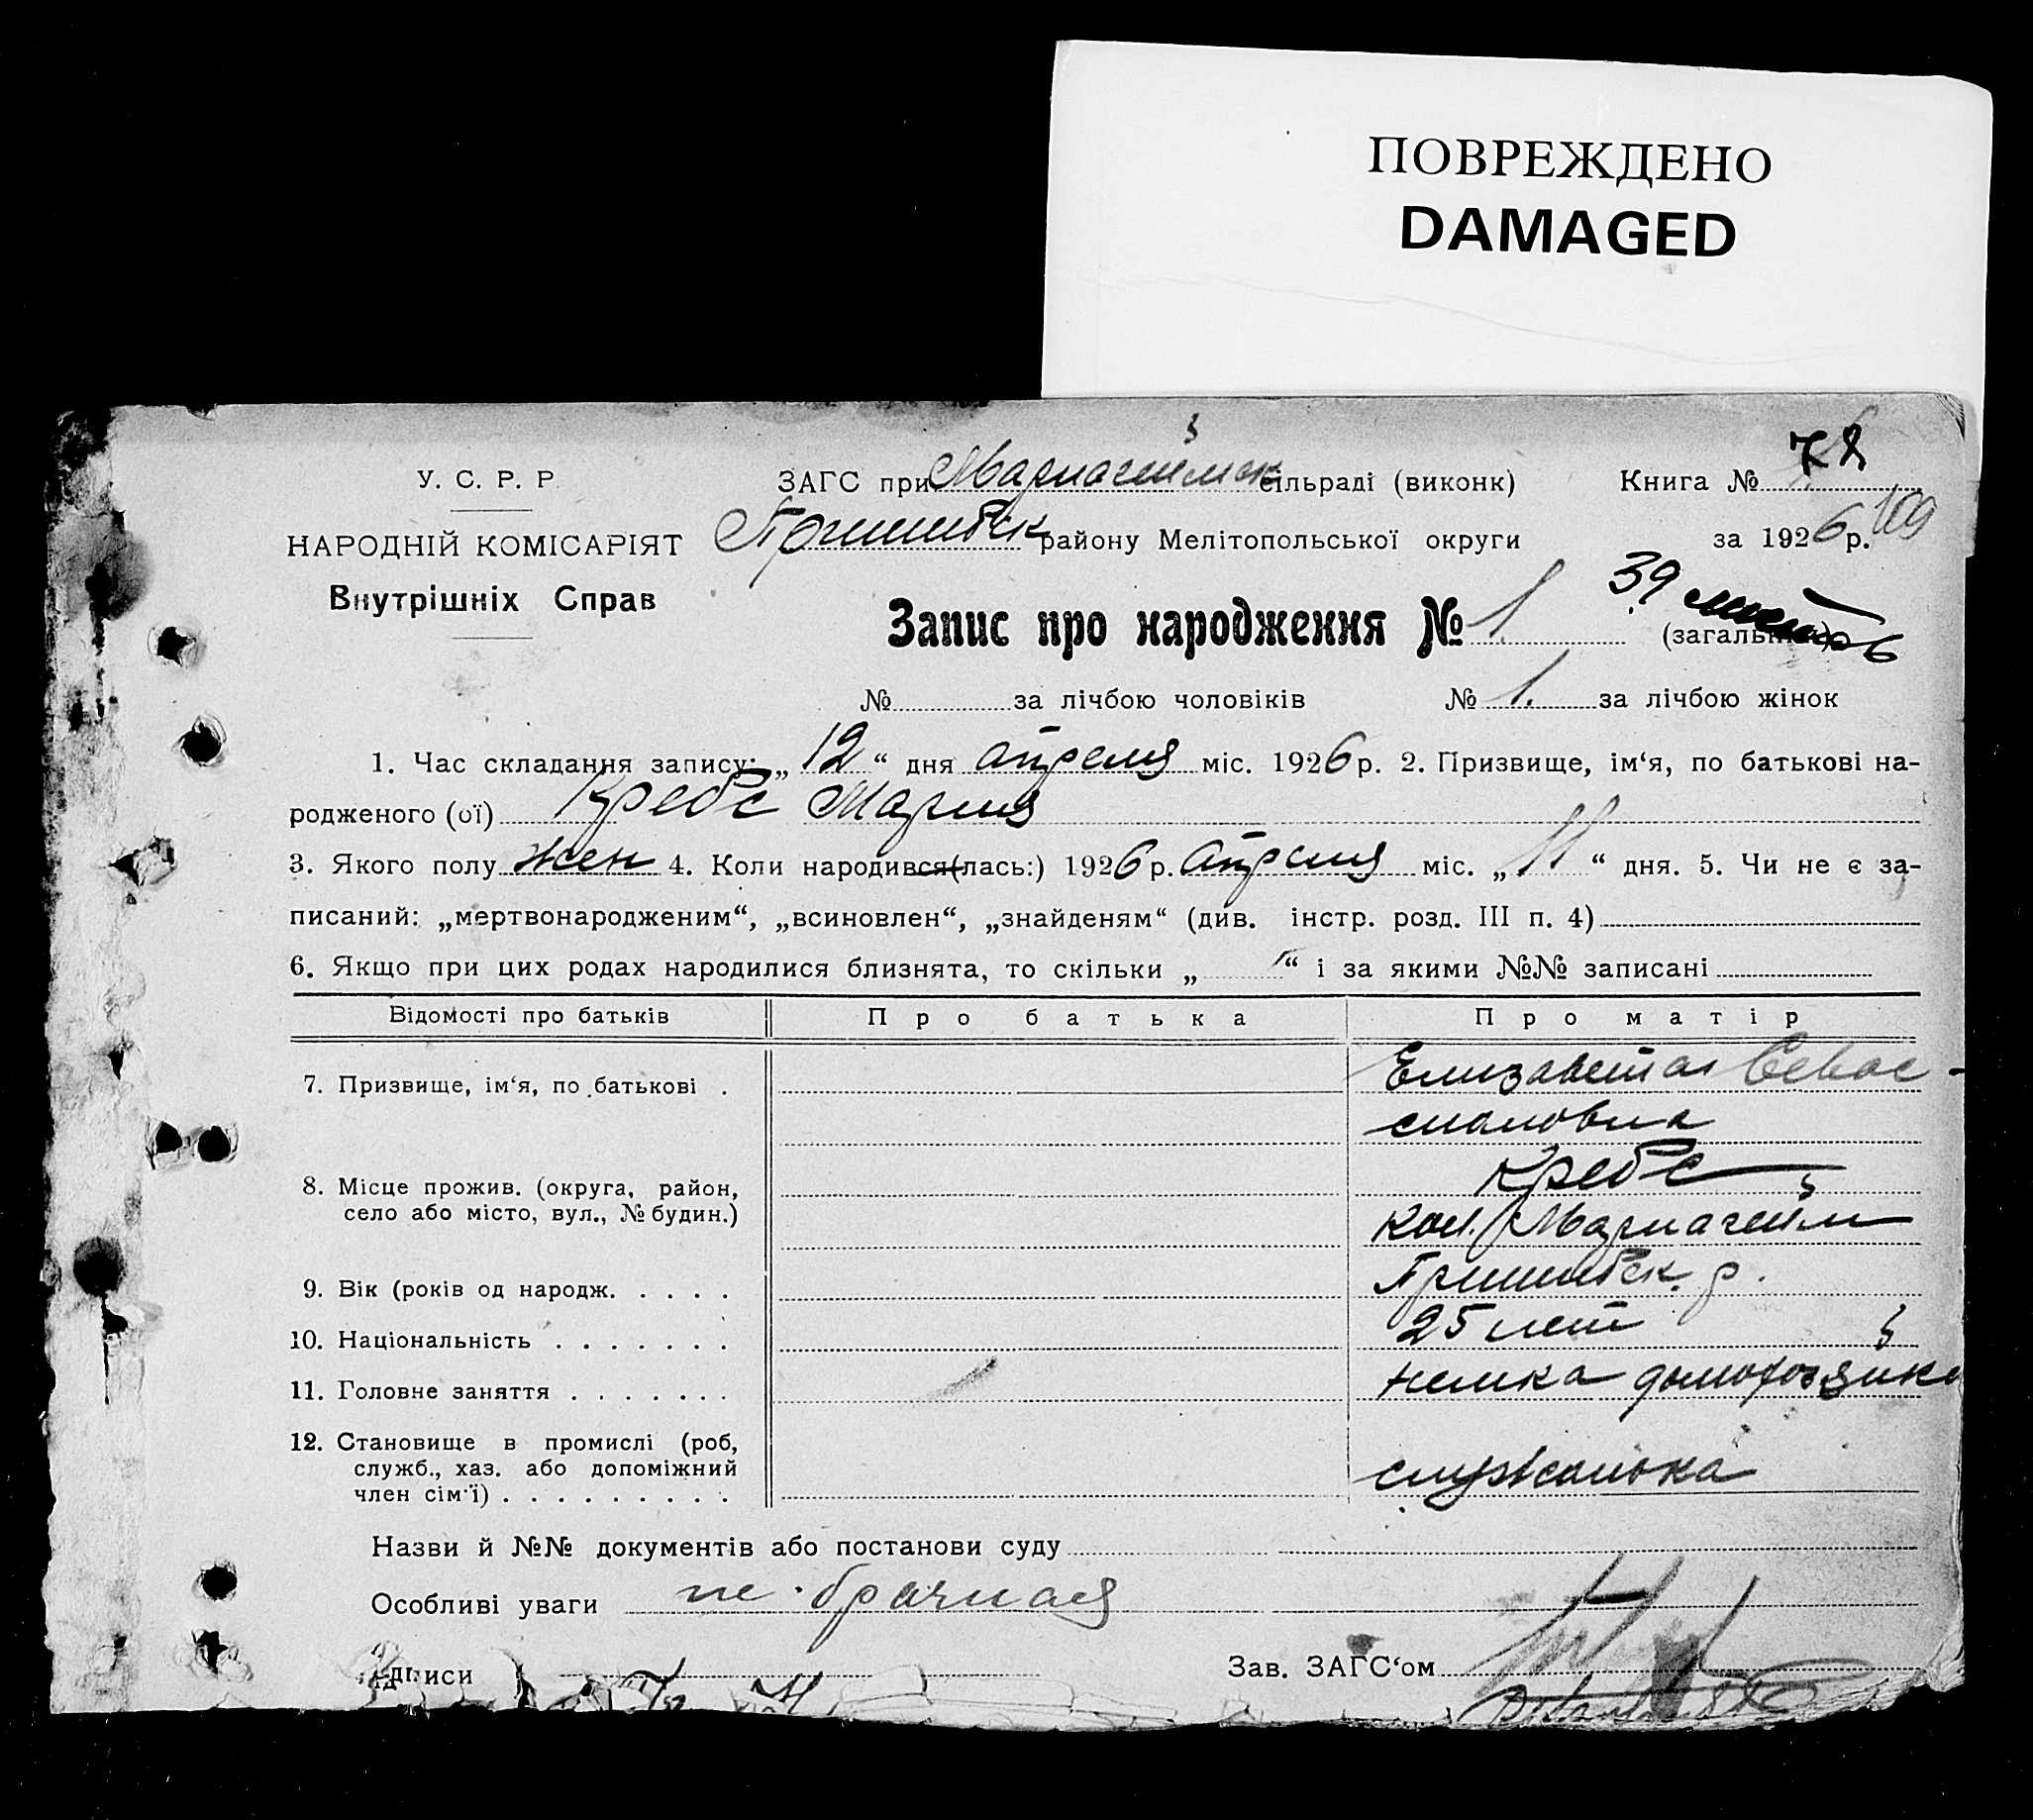 ПОВРЕЖДЕНО
DAMAGED
У. С. Р. Р.
ЗАГС при Мариагеймск сільраді (виконк)
Книга № 78
НАРОДНІЙ КОМІСАРІЯТ
Пришибск району Мелітопольської округи
за 1926 р. 109
Внутрішніх Справ
39 листов
Запис про народження № 1 (загальний)
№ за лічбою чоловіків № 1. за лічбою жінок
1. Час складання запису: „ 12 “ дня апреля міс. 1926 р. 2. Призвище, ім‘я, по батькові на-
родженого (ої) Кребс Мария
3. Якого полу жен 4. Коли народився(лась:) 1926 р. апреля міс. „ 11 “ дня. 5. Чи не є за-
писаний: „мертвонародженим“, „всиновлен“, „знайденям“ (див. інстр. розд. III п. 4)
6. Якщо при цих родах народилися близнята, то скільки „ “ і за якими №№ записані
Відомості про батьків Про батька Про матір
7. Призвище, ім‘я, по батькові . Елизавета Севас-
смановна
Кребс
8. Місце прожив. (округа, район,
село або місто, вул., № будин.)
кол. Мариагейм
Пришибск. р.
9. Вік (років од народж. . . . .
25 лет
10. Національність . . . . . . .
11. Головне заняття . . . . . . . немка домохозяйка
12. Становище в промислі (роб,
служб., хаз. або допоміжний
член сім‘ї) . . . . . . . . .
служанка
Назви й №№ документів або постанови суду
Особливі уваги не брачная
Підписи Зав. ЗАГС‘ом